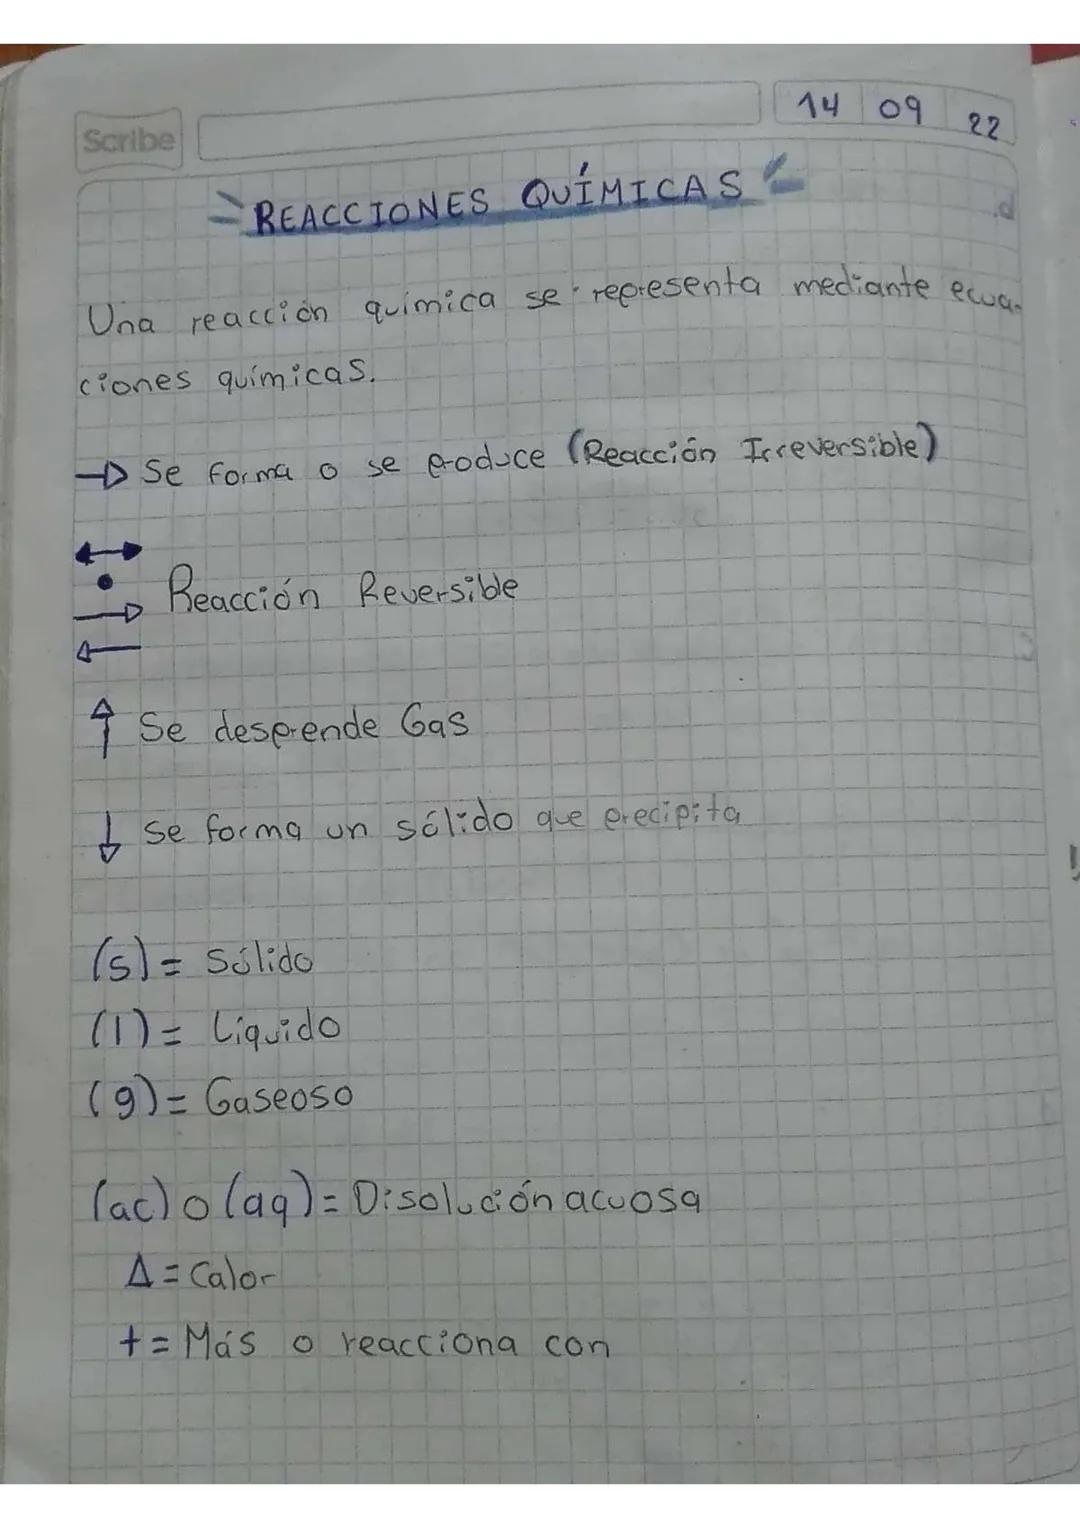 Scribe
14 09 22
REACCIONES QUÍMICAS
Una reacción química se representa mediante ecua-
ciones químicas.
→ Se forma o se produce (Reacción Irreversible)
↔
• Reacción Reversible
→
←
↑ Se desprende Gas
↓ Se forma un sólido que precipita
(s) = Sólido
(l) = Líquido
(g) = Gaseoso
(ac) o (aq) = Disolución acuosa
Δ = Calor
+ = Más o reacciona con